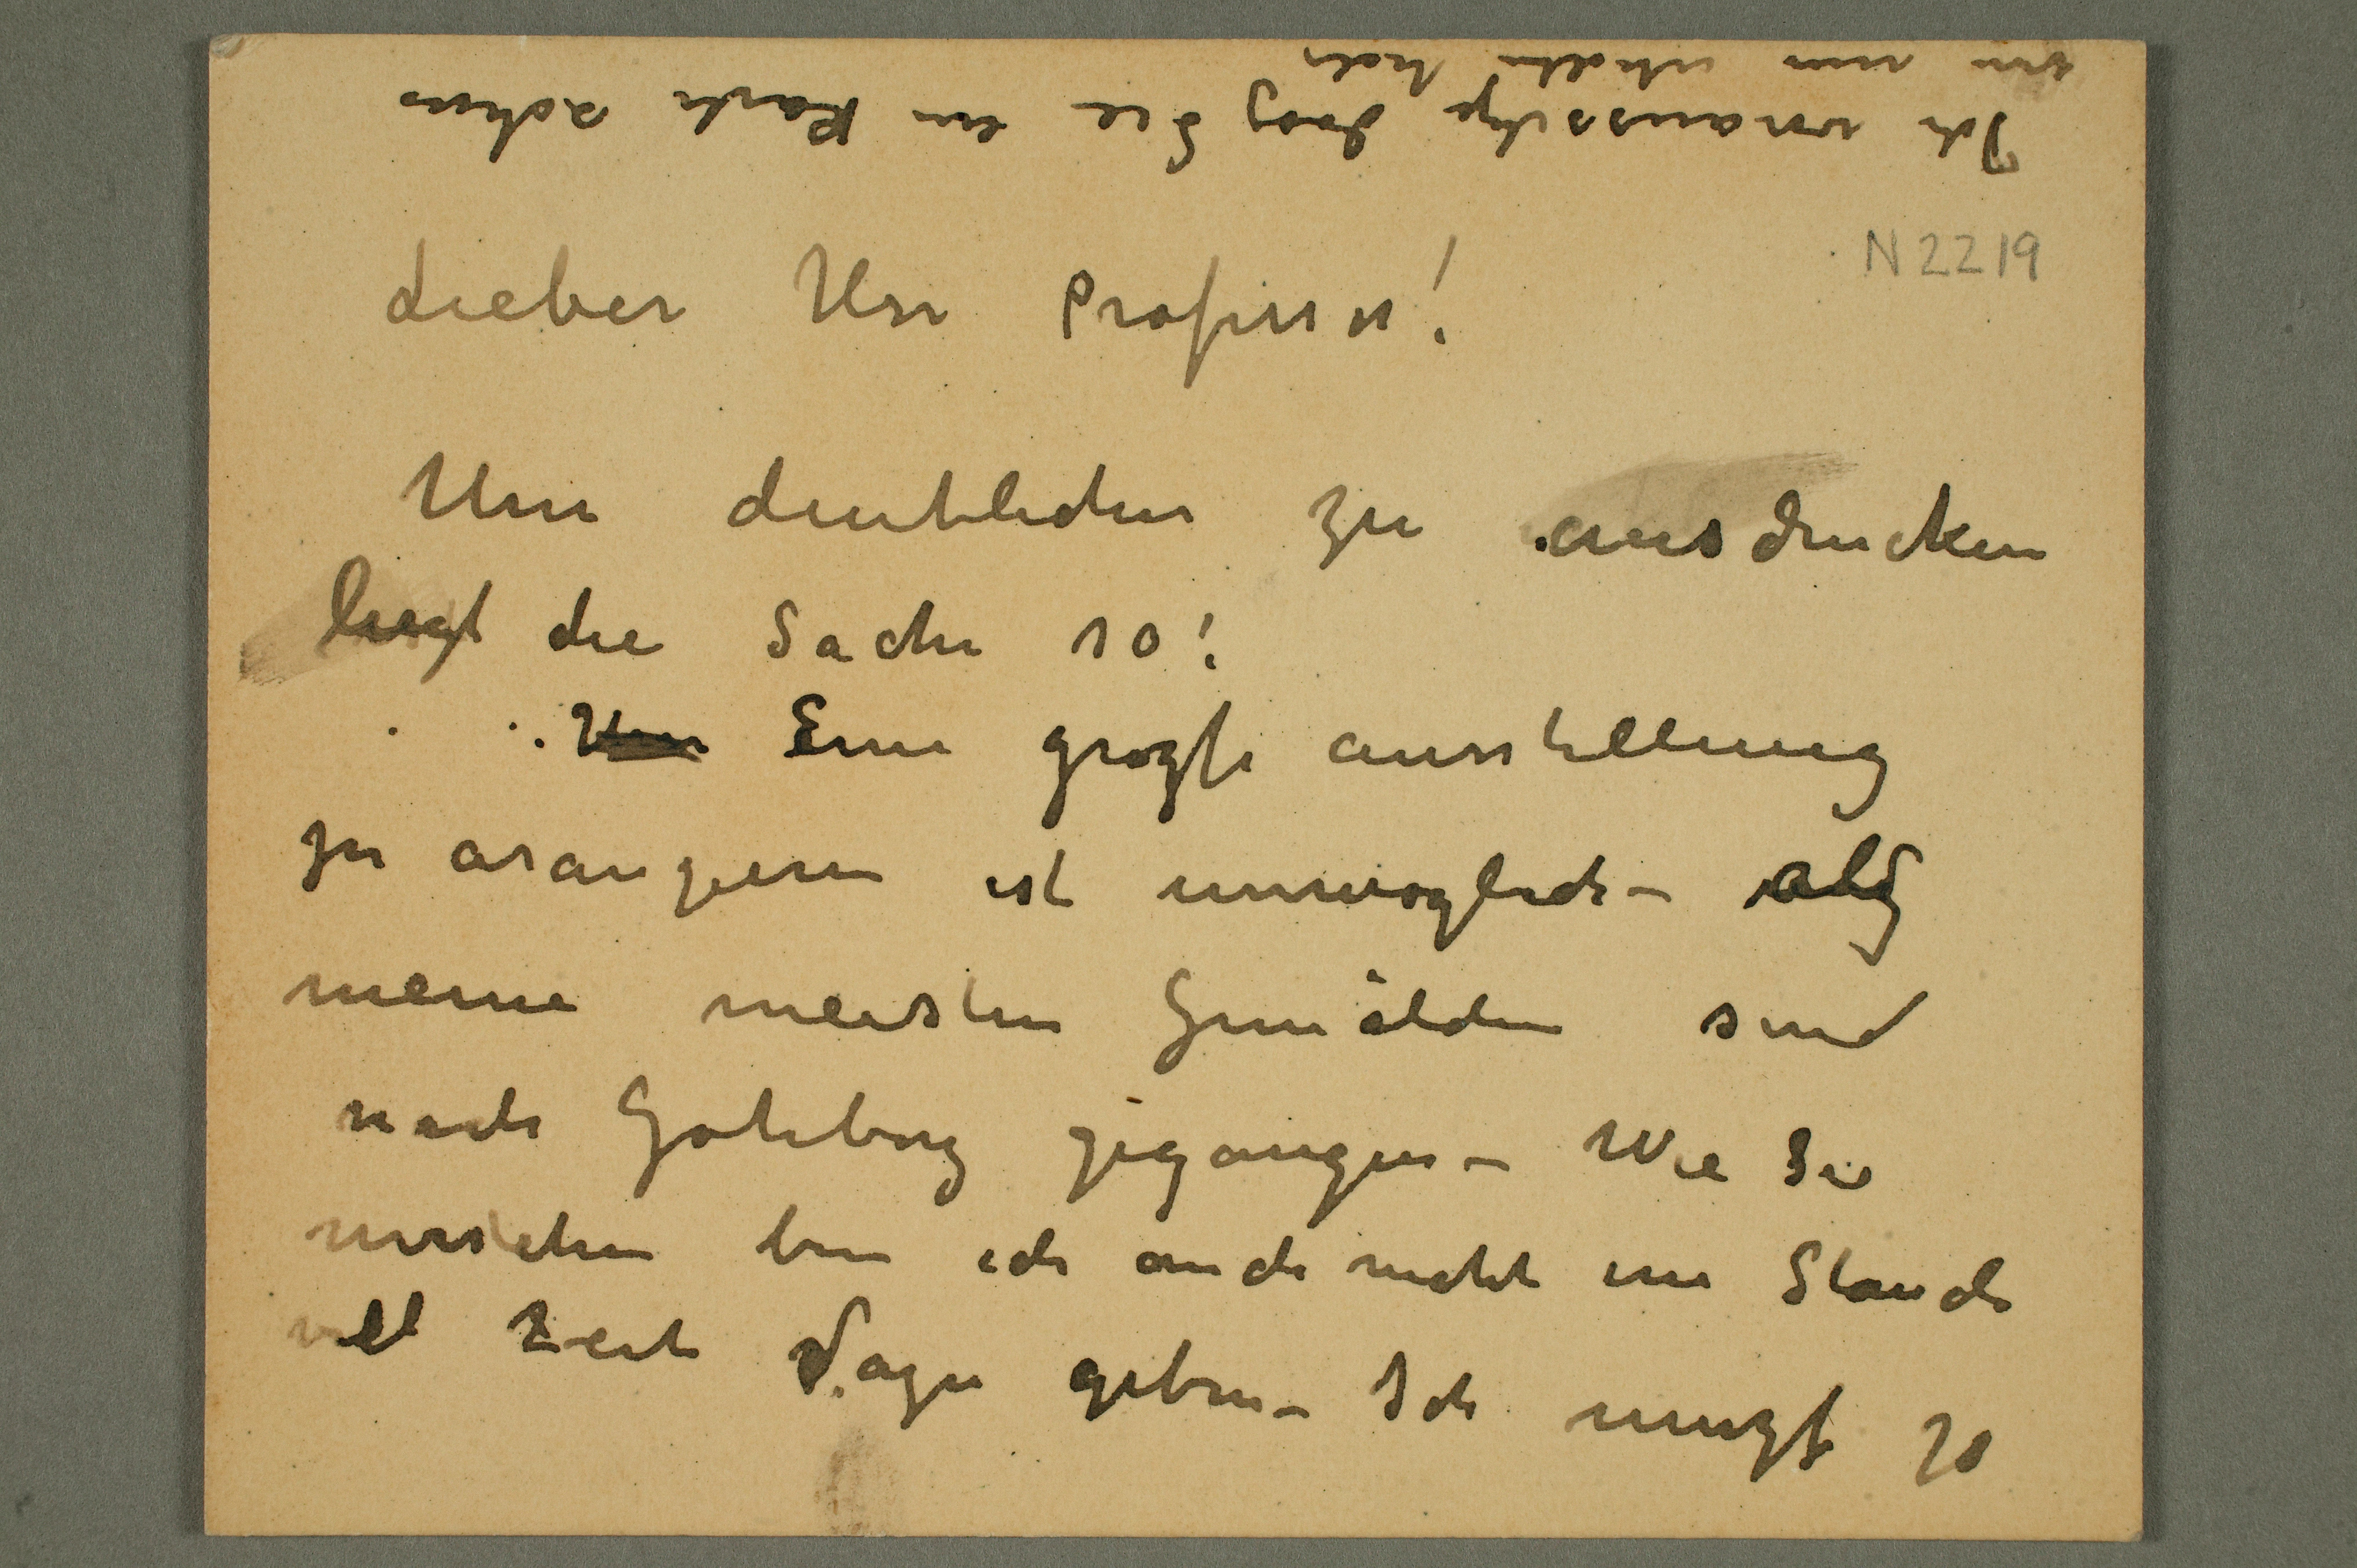 Ich voraussetze dasz Sie ein Karte schon
von mir erhalten habe
N 2219
Lieber Herr Professor!
Um deutlicher zu ausdrucken
liegt die Sache so:
Eine grozse ausstellung
zu arangieren ist unmöglich –
meine meisten Gemälden sind
nach Gøteborg gegangen – Wie Sie
verstehen bin ich auch nicht im Stande
viel Zeit dazu geben – Ich muszt ja